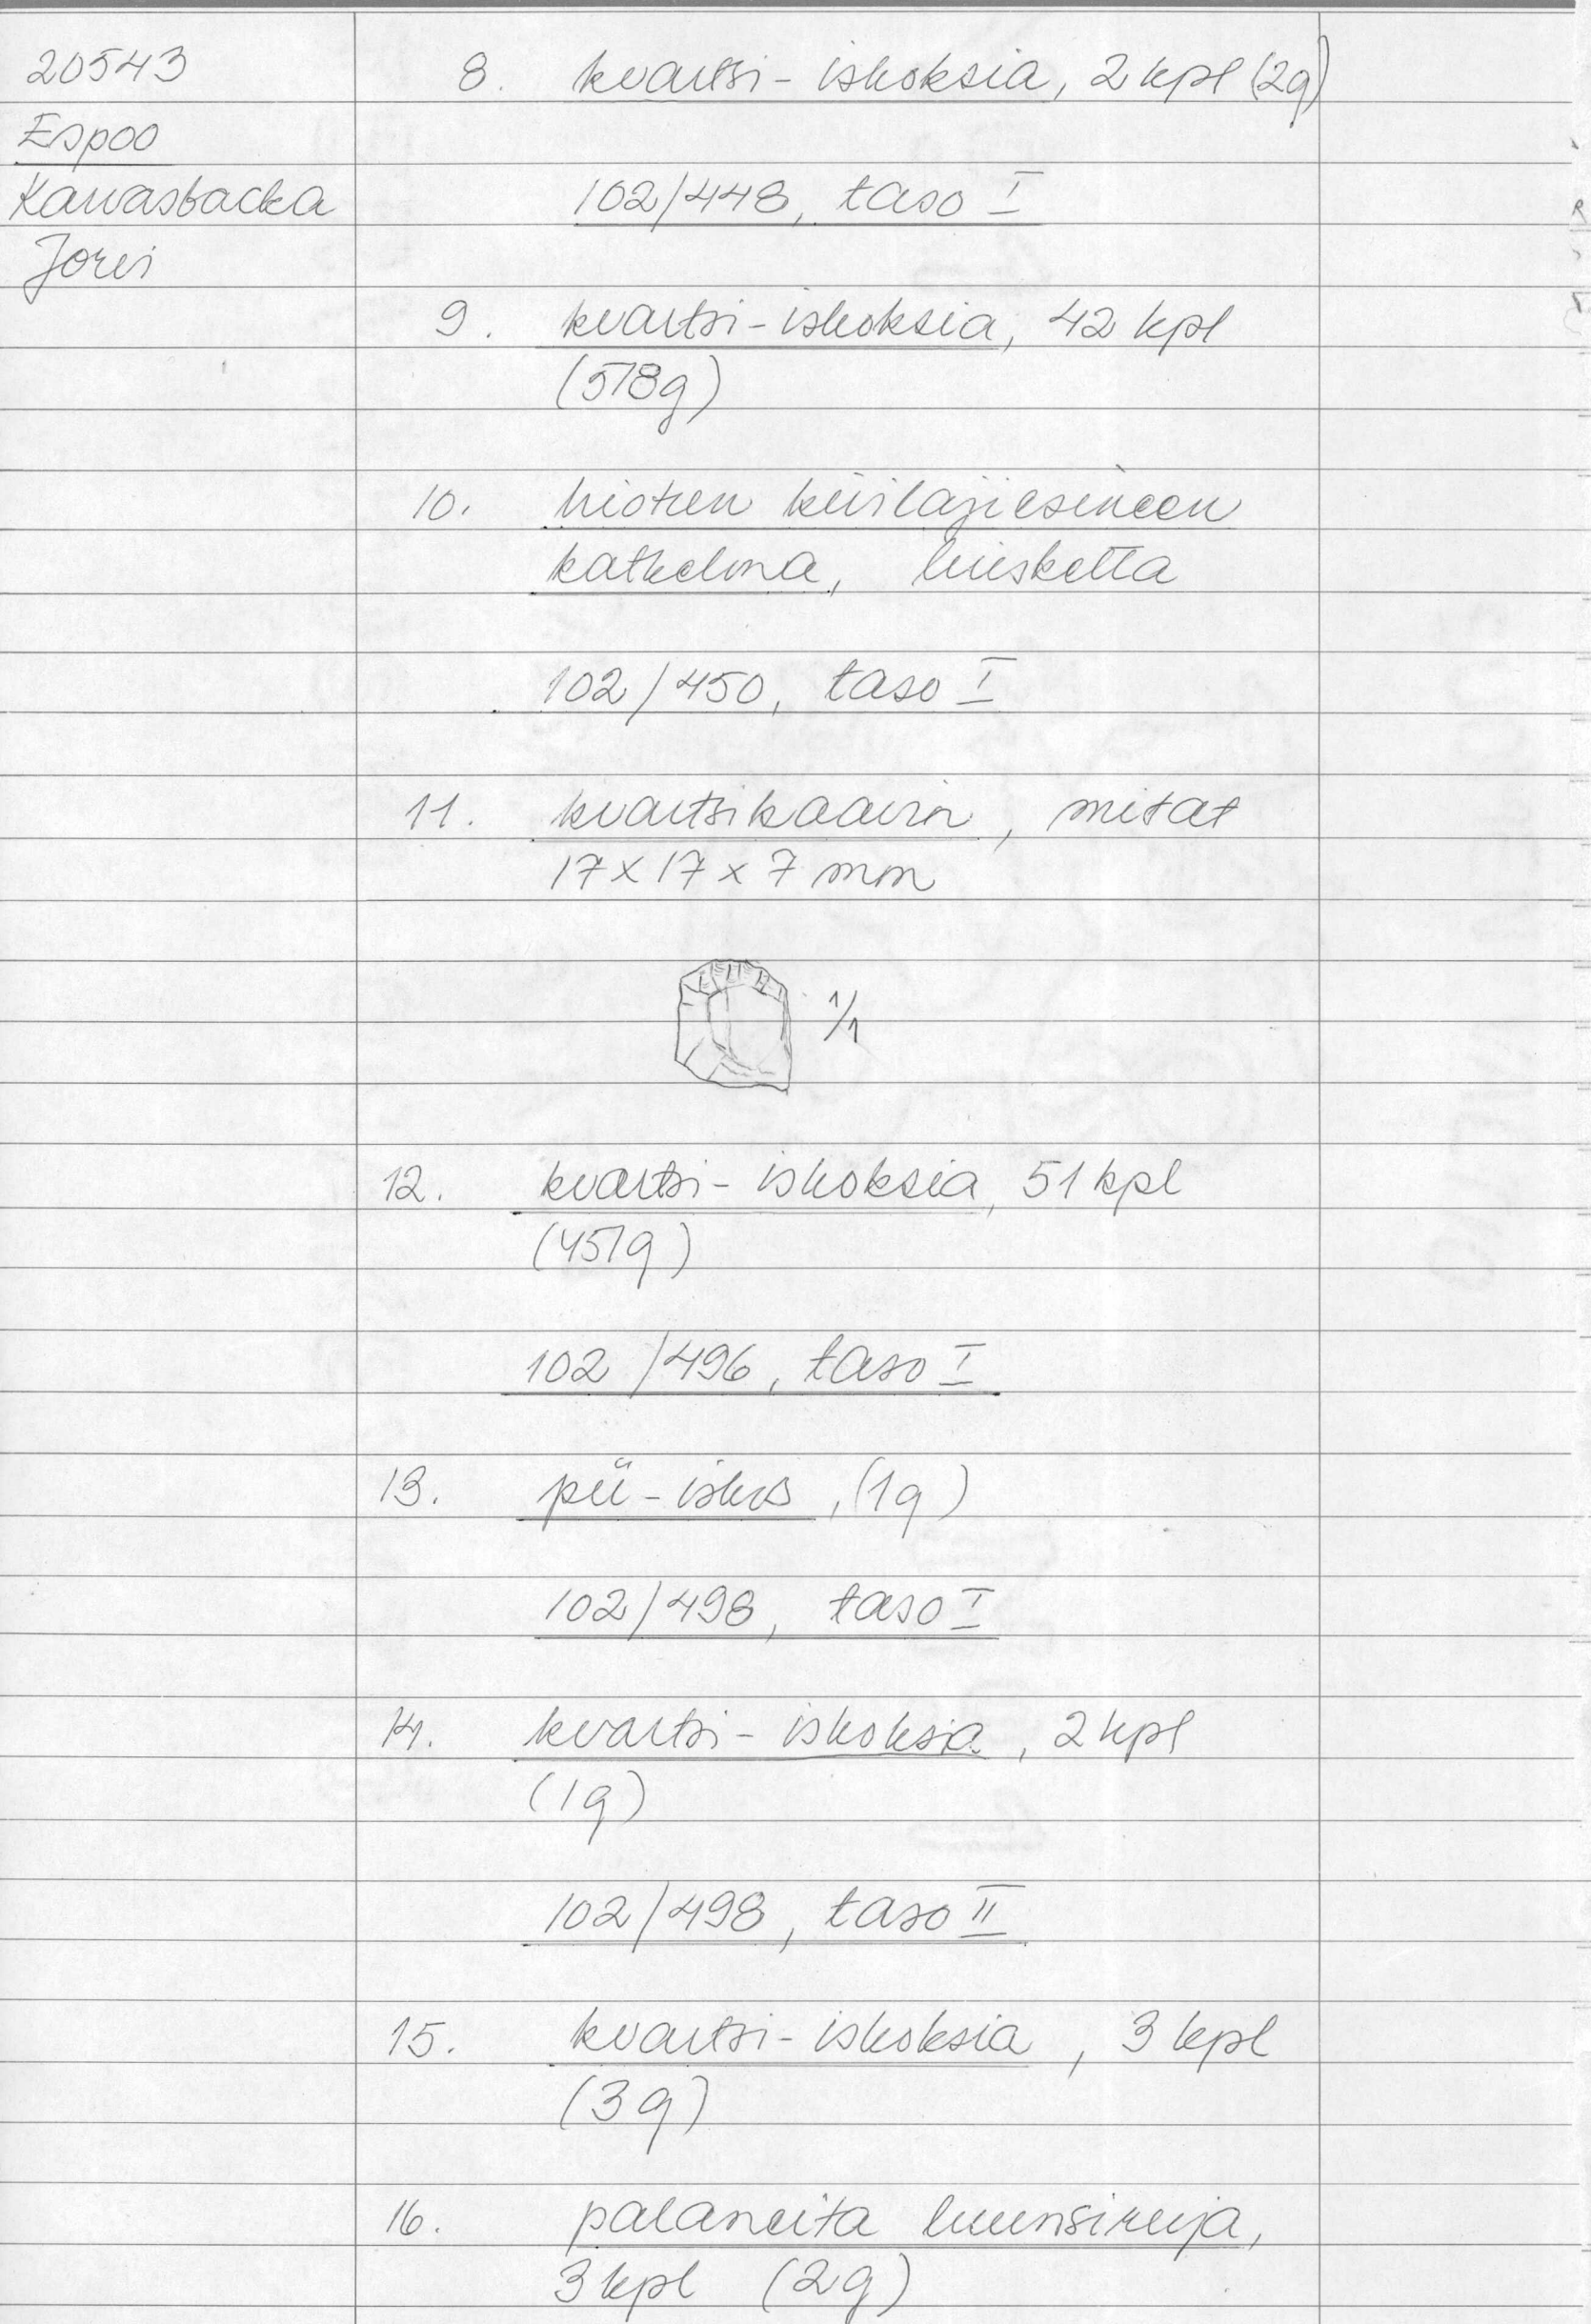 20543
Espoo
Karvasbacka
Jorvi
8. kvartsi-iskoksia, 2 kpl (2g)
102/448, taso I
9. kvartsi-iskoksia, 42 kpl
(578g)
10. hiotun kivilajiesineen
katkelma, liusketta
102/450, taso I
11. kvartsikaavin, mitat
17 x 17 x 7 mm
1/1
12. kvartsi-iskoksia, 51 kpl
(451g)
102/496, taso I
13. pii-iskos, (1g)
102/498, taso I
14. kvartsi-iskoksia, 2 kpl
(1g)
102/498, taso II
15. kvartsi-iskoksia, 3 kpl
(3g)
16. palaneita luunsiruja,
3 kpl (2g)